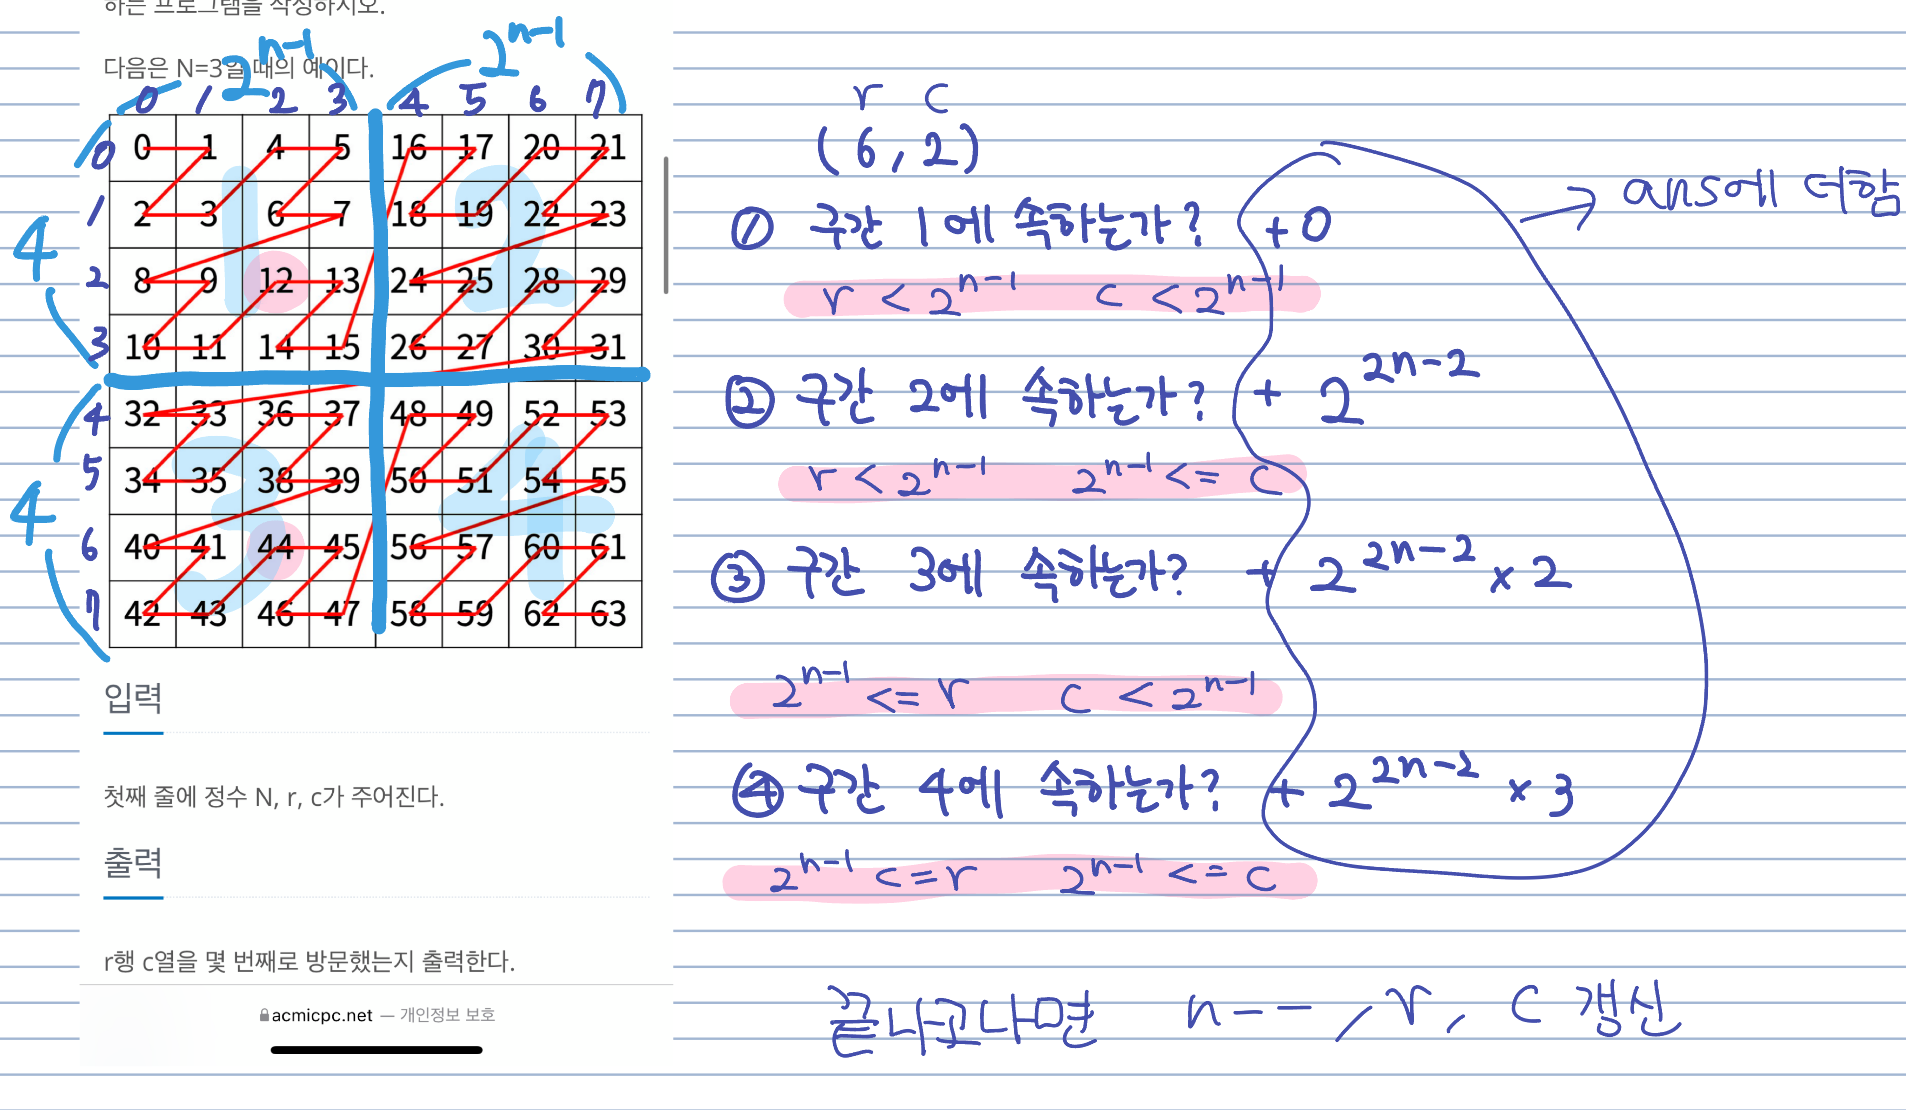 하는 프로그램을 작성하시오.
다음은 N=3일 때의 예이다.
2^{n-1} 2^{n-1}
0 1 2 3 4 5 6 7
0 0 1 4 5 16 17 20 21
1 2 3 6 7 18 19 22 23
2 8 9 12 13 24 25 28 29
3 10 11 14 15 26 27 30 31
4 32 33 36 37 48 49 52 53
5 34 35 38 39 50 51 54 55
6 40 41 44 45 56 57 60 61
7 42 43 46 47 58 59 62 63
4
4
1 2
3 4
입력
첫째 줄에 정수 N, r, c가 주어진다.
출력
r행 c열을 몇 번째로 방문했는지 출력한다.
acmicpc.net — 개인정보 보호
r c
(6, 2)
① 구간 1에 속하는가? +0
→ ans에 더함
r < 2^{n-1} c < 2^{n-1}
② 구간 2에 속하는가? + 2^{2n-2}
r < 2^{n-1} 2^{n-1} <= c
③ 구간 3에 속하는가? + 2^{2n-2} × 2
2^{n-1} <= r c < 2^{n-1}
④ 구간 4에 속하는가? + 2^{2n-2} × 3
2^{n-1} <= r 2^{n-1} <= c
끝나고나면 n--, r, c 갱신